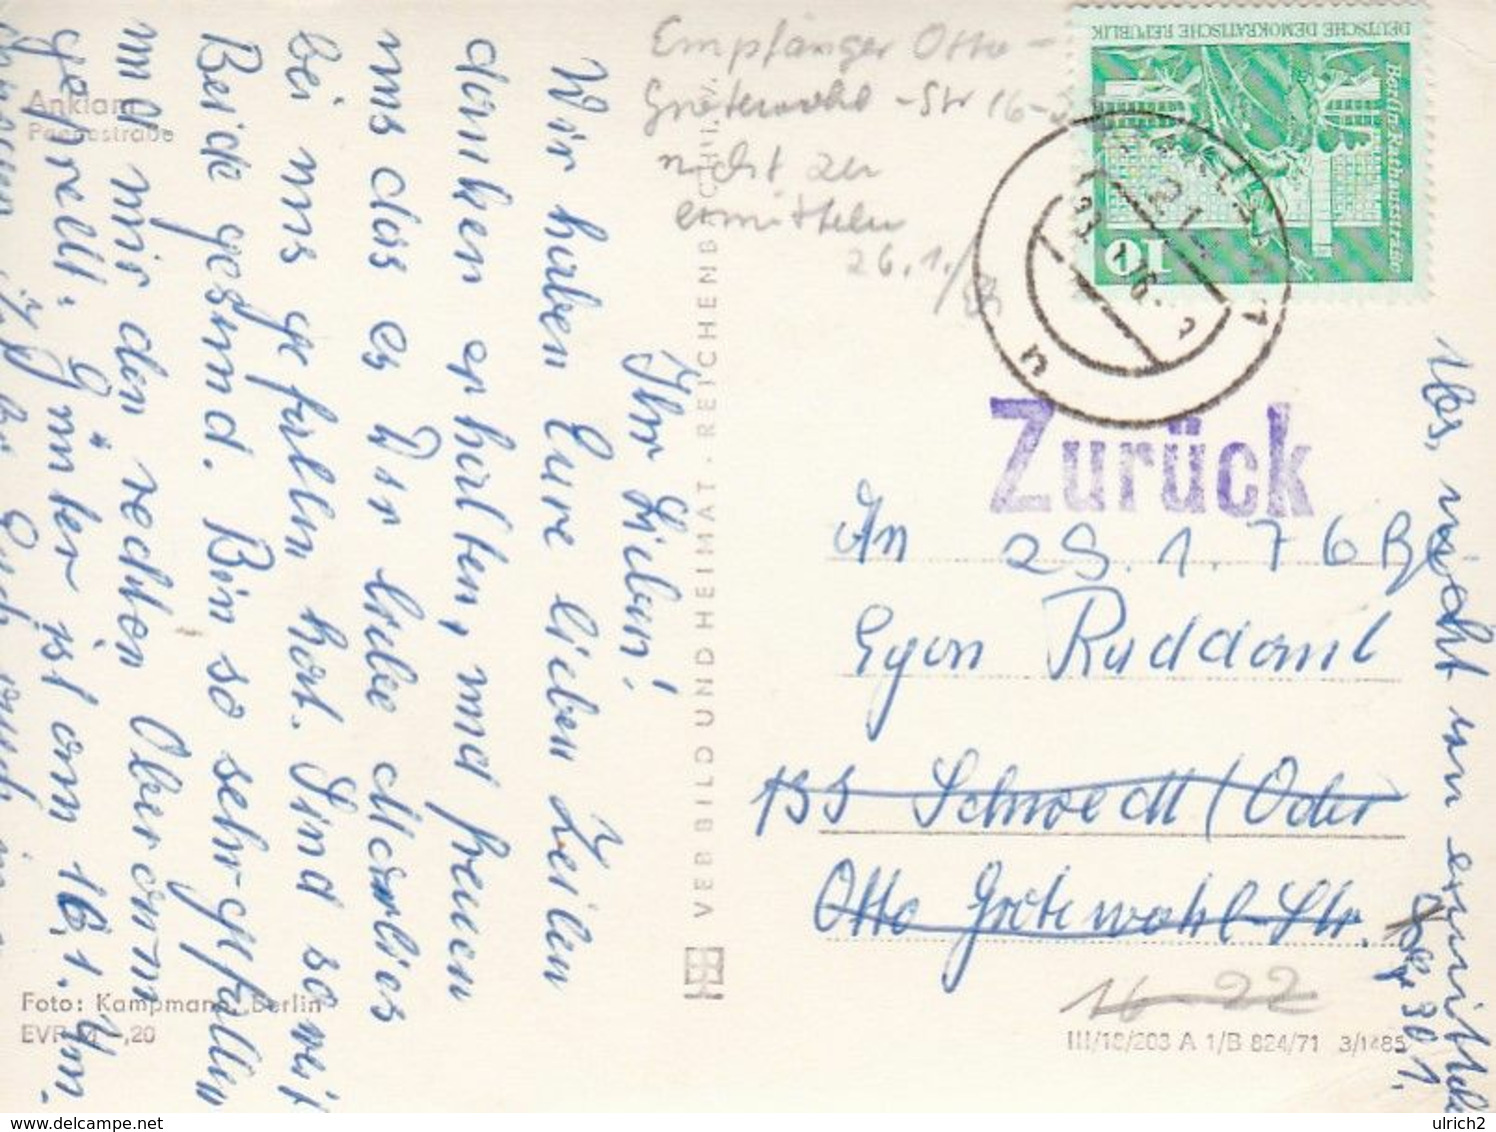 Anklam
Peenestraße
Ihr Lieben!
Wir haben Eure lieben Zeilen
dankend erhalten, und freuen
uns das es Dir liebe Marlies
bei uns gefallen hat. Sind soweit
Beide gesund. Bin so sehr gefallen
und mir den rechten Oberarm
geprellt. Günter ist am 16.1. 
Foto: Kampmann, Berlin
EVP M -,20
VEB BILD UND HEIMAT · REICHENBACH I. V.
Empfänger Otto-
Grotewohl-Str 16-
nicht zu
ermitteln
26.1.
DEUTSCHE DEMOKRATISCHE REPUBLIK
Berlin, Rathausstraße
10
Zurück
An 29.1.76
Egon Ruddaml
133 Schwedt/Oder
Otto Grotewohl-Str.
16-22
III/18/203 A 1/B 824/71 3/1485
nicht zu ermitteln
30.1.
delcampe.net
ulrich2